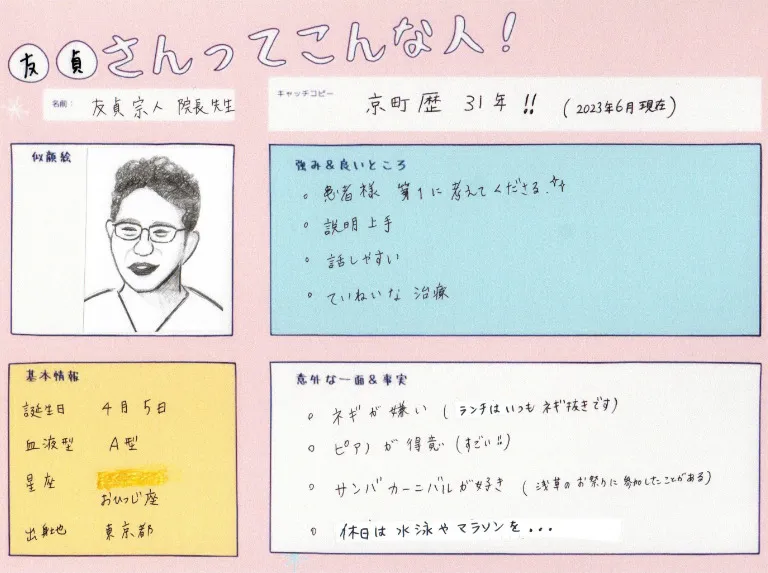 友貞さんってこんな人!
名前: 友貞宗人 院長先生
キャッチコピー 京町歴 31年!! (2023年6月現在)
似顔絵
強み&良いところ
。患者様 第1に考えてくださる.
。説明上手
。話しやすい
。ていねいな 治療
基本情報
誕生日 4月5日
血液型 A型
星座
おひつじ座
出身地 東京都
意外な一面&事実
。ネギが嫌い (ランチはいつもネギ抜きです)
。ピアノが得意(すごい!!)
。サンバカーニバルが好き (浅草のお祭りに参加したことがある)
。休日は水泳やマラソンを...